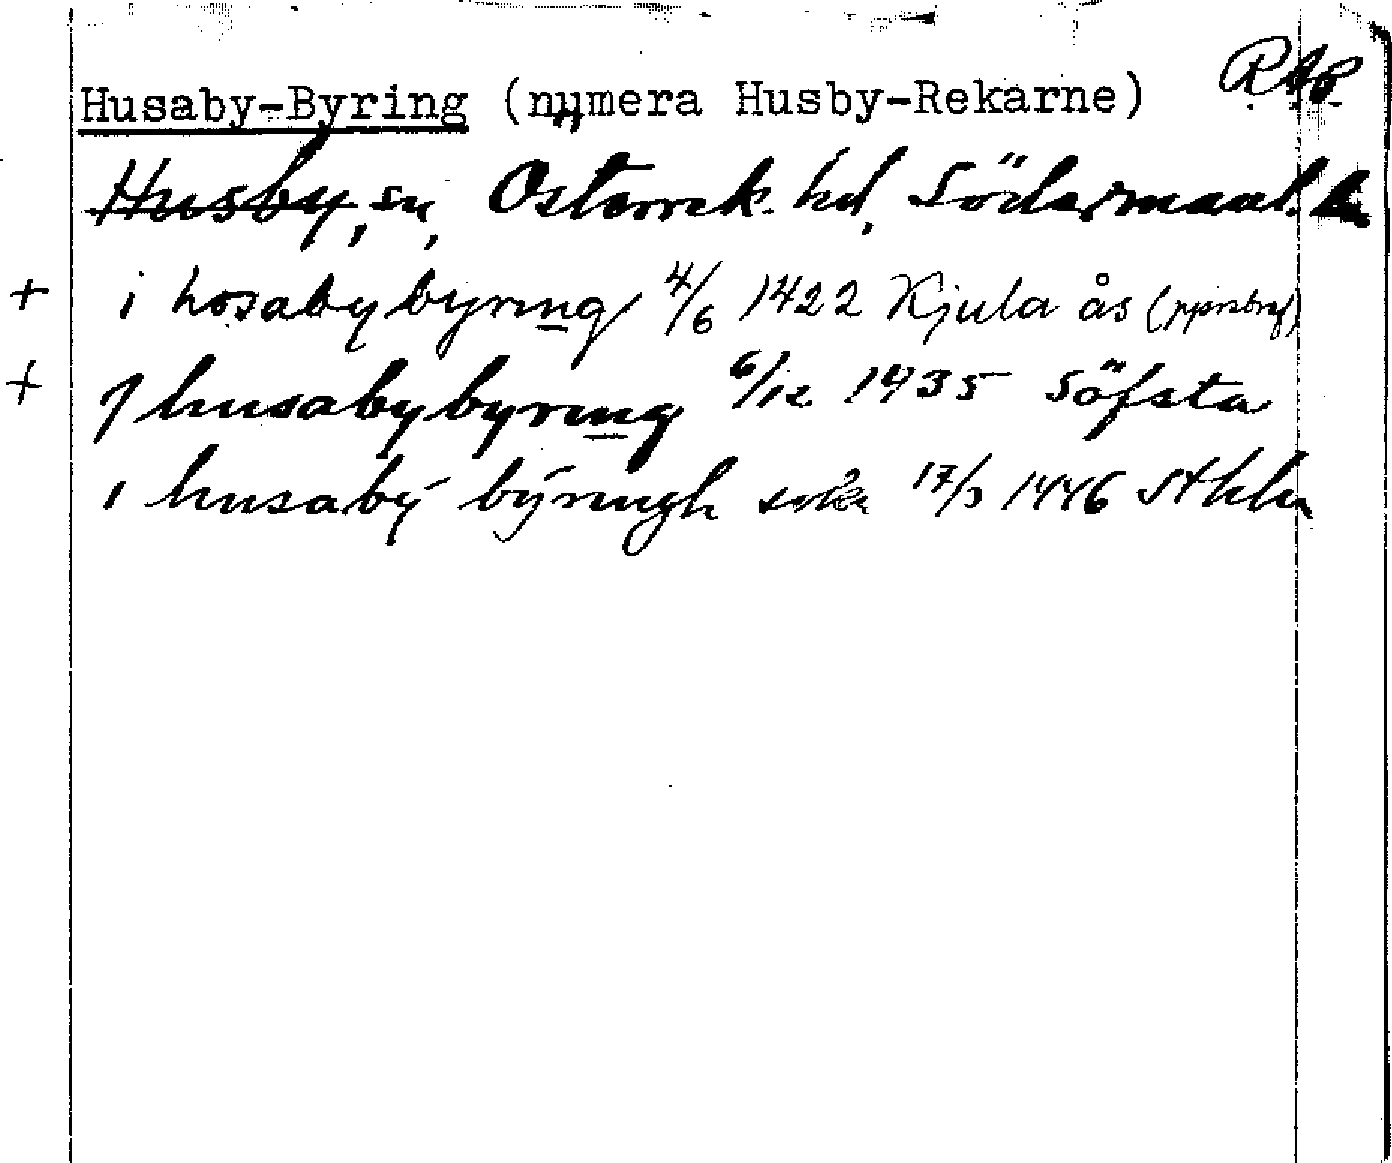 RAp
Husaby-Byring (numera Husby-Rekarne)
Husby, sn, Österrek. hd, Södermanl. län
+ i hosabybyring 4/6 1422 Kjula ås (pprsbref)
+ J husabybyring 6/12 1435 Söfsta
i husaby byringh sokn 17/3 1446 Sthlm